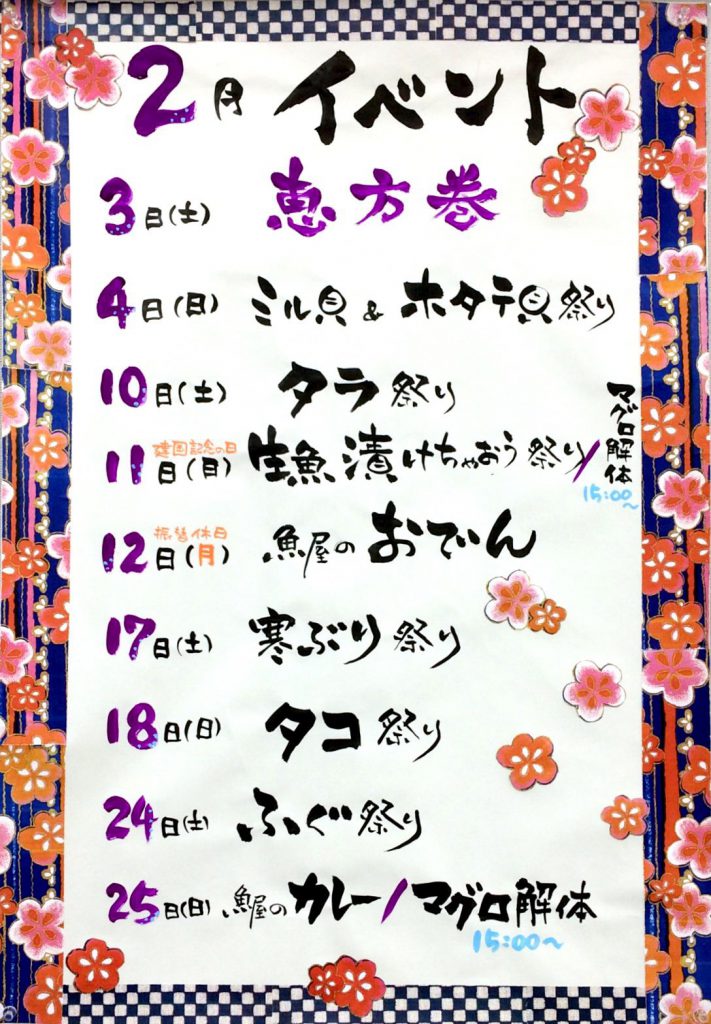 2月 イベント
3日(土) 恵方巻
4日(日) ミル貝 & ホタテ貝祭り
10日(土) タラ祭り
建国記念の日
11日(日) 生魚漬けちゃおう祭り/マグロ解体
15:00~
振替休日
12日(月) 魚屋のおでん
17日(土) 寒ぶり祭り
18日(日) タコ祭り
24日(土) ふぐ祭り
25日(日) 魚屋のカレー/マグロ解体
15:00~